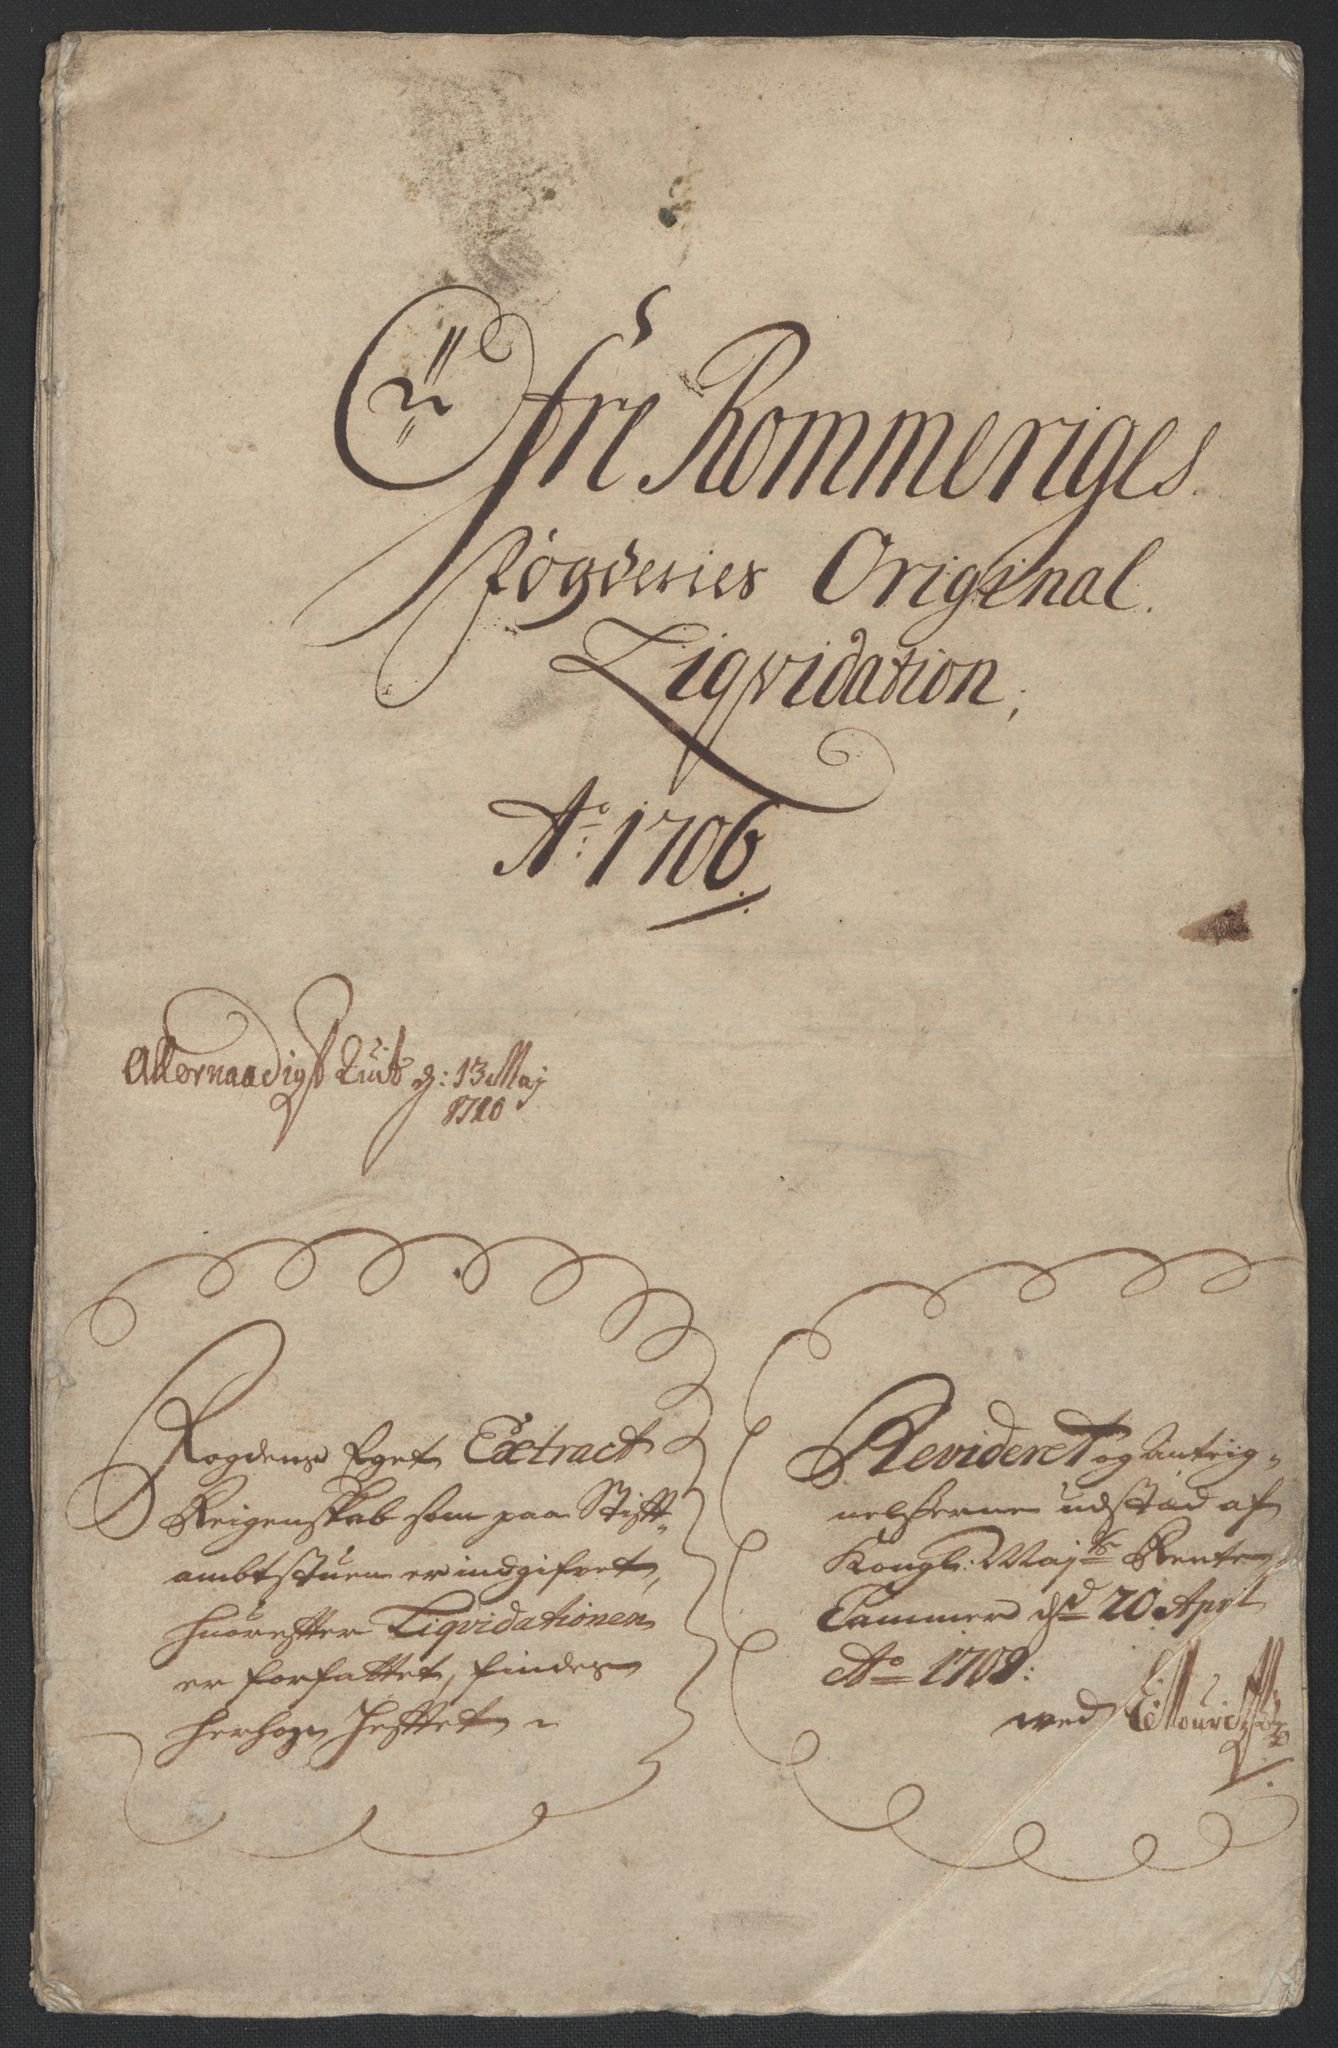 Öfre Rommeriges
fögderies Original
Liqvidation,
Ao: 1706
Allernaadigst Quit: d: 13 Maj
1710
Fogdens Eget Extract
Reigenskab som paa Stifft-
ambtstuen er indgifvet,
huorefter Liqvidationen
er forfattet, findes
herhos Hefftet
Revideret og Anteig-
nelsserne udstæd af
Kongl: Majts Rente
Cammer dnd 20 Aprl
Ao 1709:
ved